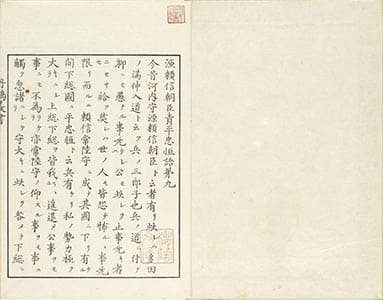 源頼信朝臣責平忠恒語第九
今昔河内守源頼信朝臣ト云者有リ此レハ多田
ノ満仲入道ト云フ兵ノ三郎子也兵ノ道ニ付テ
聊ニモ愚ナル事无ケレハ公モ此レヲ止事无キ者
ニセサセ給フ然レハ世ノ人モ皆恐ヂ怖ルヽ事无
限リ而ル間頼信常陸守ニ成テ其国ニ下リテ有ケル
間下総国ニ平忠恒ト云兵有ケリ私ノ勢力極テ
大キニシテ上総下総ヲ皆我マヽニ進退シテ公事ヲモ
事ニモ不為リケリ亦常陸守ノ仰スル事ヲモ事ニ
触レテ忽諸ニシケリ守大キニ此レヲ咎メテ下総ニ
丹鶴叢書